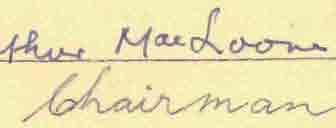 thur MacLoone
Chairman